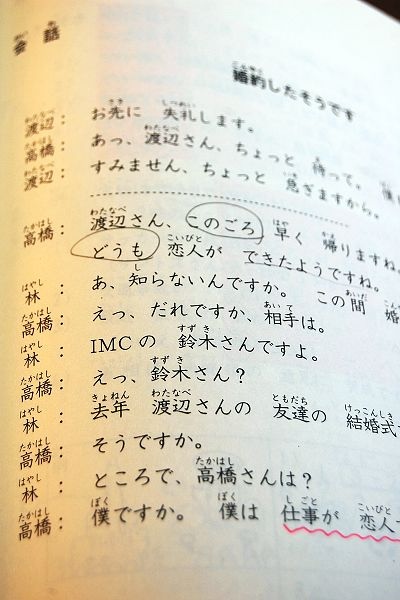 会話
婚約したそうです
渡辺：お先に 失礼します。
高橋：あっ、渡辺さん、ちょっと 待って。 僕
渡辺：すみません、ちょっと 急ぎますから。
高橋：渡辺さん、このごろ 早く 帰りますね
どうも 恋人が できたようですね。
林：あ、知らないんですか。 この間 婚
高橋：えっ、だれですか、相手は。
林：IMCの 鈴木さんですよ。
高橋：えっ、鈴木さん？
林：去年 渡辺さんの 友達の 結婚式
高橋：そうですか。
林：ところで、高橋さんは？
高橋：僕ですか。 僕は 仕事が 恋人